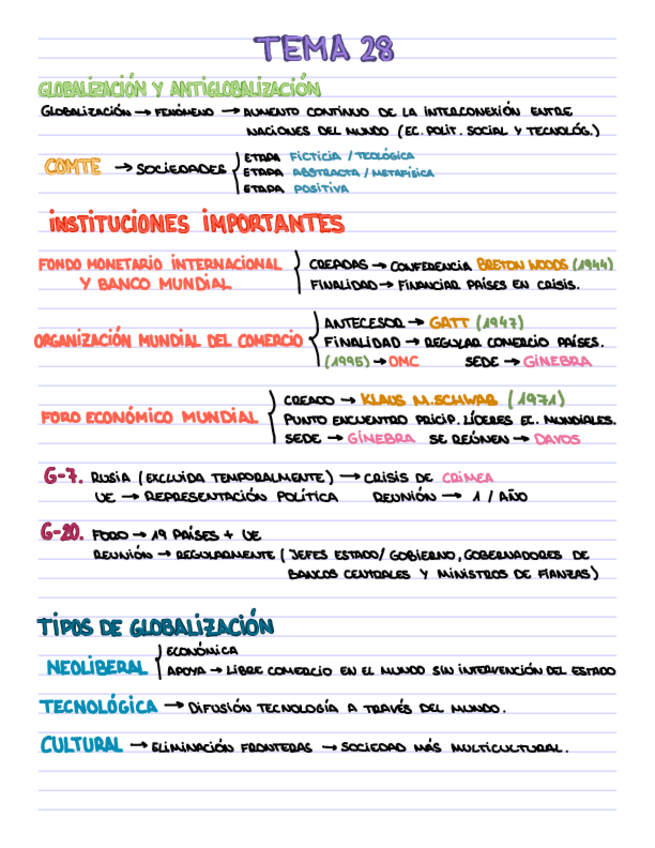 TEMA 28
GLOBALIZACIÓN Y ANTIGLOBALIZACIÓN
GLOBALIZACIÓN → FENÓMENO → AUMENTO CONTINUO DE LA INTERCONEXIÓN ENTRE
NACIONES DEL MUNDO (EC. POLIT. SOCIAL Y TECNOLÓG.)
COMTE → SOCIEDADES
ETAPA FICTICIA / TEOLÓGICA
ETAPA ABSTRACTA / METAFÍSICA
ETAPA POSITIVA
INSTITUCIONES IMPORTANTES
FONDO MONETARIO INTERNACIONAL
Y BANCO MUNDIAL
CREADAS → CONFERENCIA BRETON WOODS (1944)
FINALIDAD → FINANCIAR PAÍSES EN CRISIS.
ORGANIZACIÓN MUNDIAL DEL COMERCIO
ANTECESOR → GATT (1947)
FINALIDAD → REGULAR COMERCIO PAÍSES.
(1995) → OMC SEDE → GINEBRA
FORO ECONÓMICO MUNDIAL
CREADO → KLAUS M. SCHWAB (1971)
PUNTO ENCUENTRO PRICIP. LÍDERES EC. MUNDIALES.
SEDE → GINEBRA SE REÚNEN → DAVOS
G-7. RUSIA (EXCLUIDA TEMPORALMENTE) → CRISIS DE CRIMEA
UE → REPRESENTACIÓN POLÍTICA REUNIÓN → 1 / AÑO
G-20. FORO → 19 PAÍSES + UE
REUNIÓN → REGULARMENTE (JEFES ESTADO / GOBIERNO, GOBERNADORES DE
BANCOS CENTRALES Y MINISTROS DE FIANZAS)
TIPOS DE GLOBALIZACIÓN
NEOLIBERAL
ECONÓMICA
APOYA → LIBRE COMERCIO EN EL MUNDO SIN INTERVENCIÓN DEL ESTADO
TECNOLÓGICA → DIFUSIÓN TECNOLOGÍA A TRAVÉS DEL MUNDO.
CULTURAL → ELIMINACIÓN FRONTERAS → SOCIEDAD MÁS MULTICULTURAL.